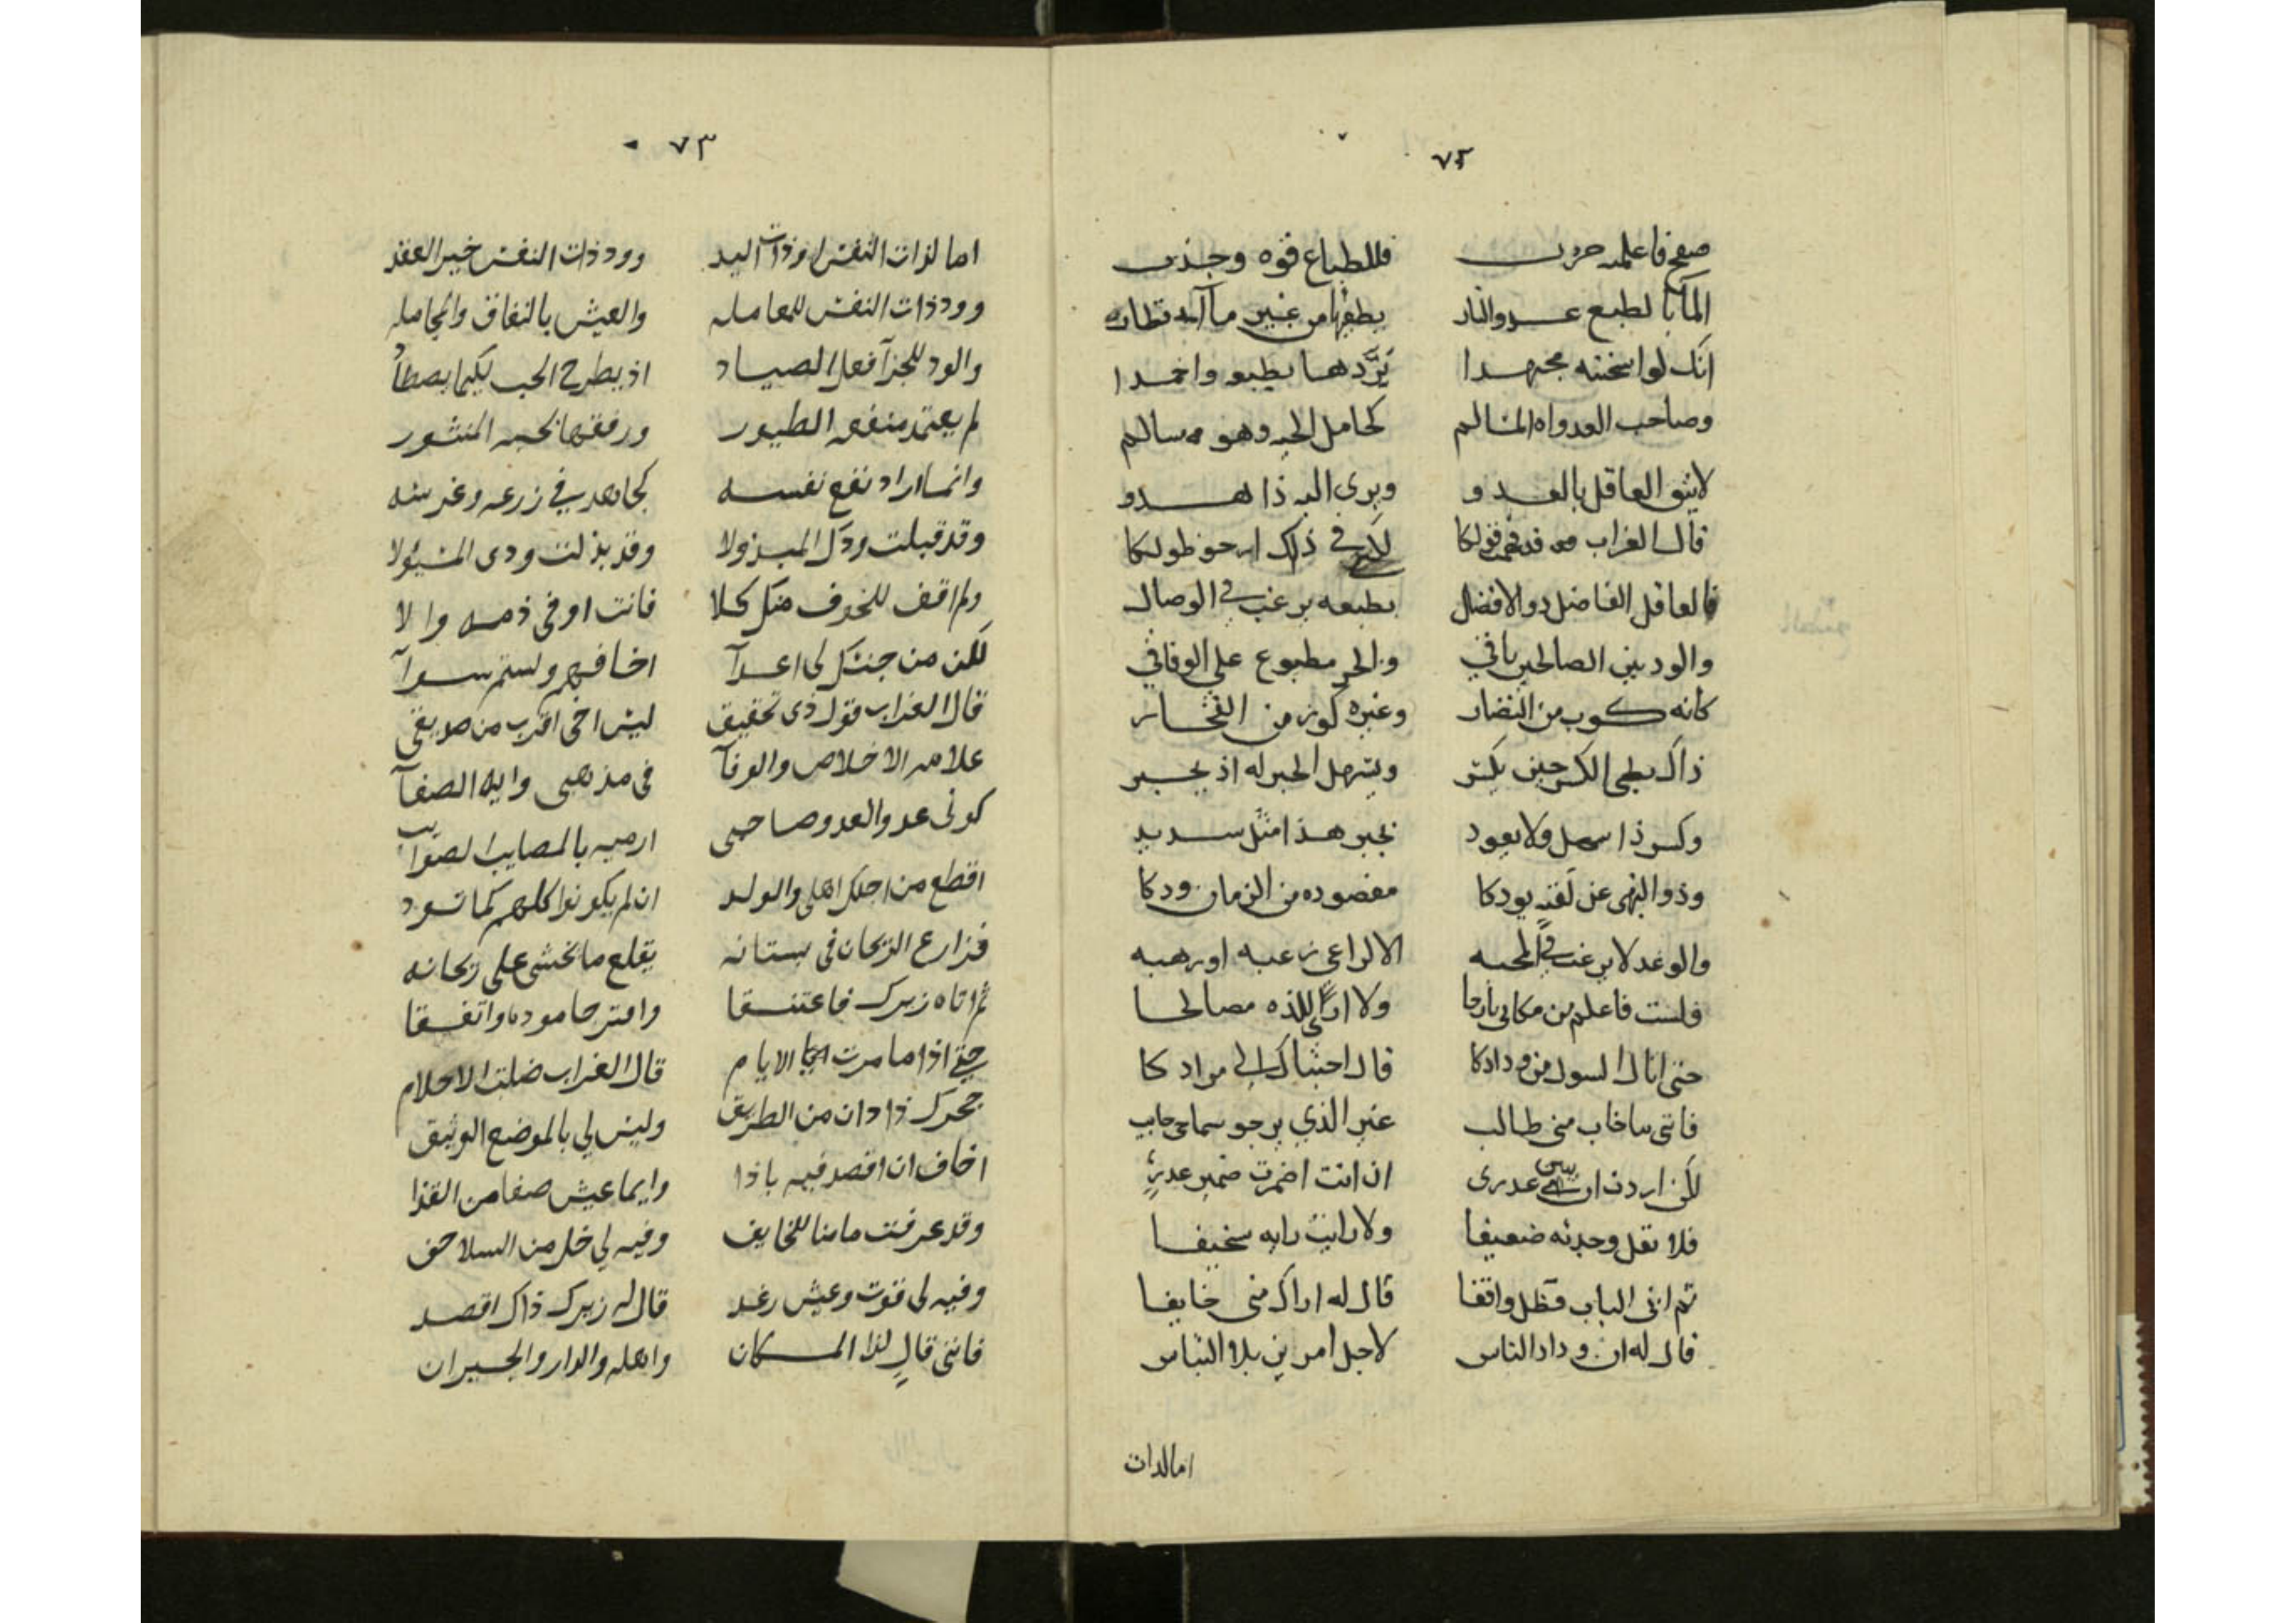 ٧٢
صلح فاعلمه حرب فللطباع قوه وجذب
الماء بالطبع عدو النار يطفيها من غير ما
انك لو اسخنته مجتهدا بردها بطبعه واخمدا
وصاحب العدو اه المسالم كحامل الحيه وهو سالم
لا يثق العاقل بالعدو ويرى اليه ذا هدو
قال الغراب قد فهمت قولكا في ذلك ارجو طولكا
فالعاقل الفاضل ذو الافضال بطبعه يرغب في الوصال
والود بين الصالحين باقي والحر مطبوع على الوفاق
كانه كوب من النضار وغيره كوز من الفخار
ذاك بطي الكسر حين يكسر ويسهل الجبر له اذ يجبر
وكسر ذا سهل ولا يعود بجبر هذا مثل سديد
وذو النهى عن لقيه يودكا مقصوده من الزمان ودكا
والوغد لا يرغب في المحبه الا لداعي رغبه او رهبه
فلست فاعلم من مكاني بارحا ولا ارى للذه مصالحا
حتى انال السول من ودادكا قال احبناك الى مرادكا
فانني ما خاب مني طالب غير الذي يرجو سماحي خايب
لكن اردت ان عذري ان انت اضمرت ضمير غدر
فلا تقل وجدته ضعيفا ولا رايت رايه سخيفا
ثم اتى الباب فظل واقفا قال له اراك مني خايفا
قال له ان وداد الناس لاجل امرين بلا التباس
امالذات
٧٣
اما لذات النفس او ذات اليد وود ذات النفس خير العقد
وود ذات النفس للمعامله والعيش بالنفاق والمجامله
والود للجزآ فعل الصياد اذ يطرح الحب لكيما يصطاد
لم يعتمد منفعه الطيور ورفقها بحبه المنثور
وانما اراد نفع نفسه كجاهد في زرعه وغرسه
وقد قبلت ودك المبذولا وقد بذلت ودى المسئولا
ولم اقف للخوف منك كلا فانت اوفى ذمه والا
لكن من جنسك لى اعدآ اخافهم ولستم سوآ
قال الغراب قول ذى تحقيق ليس اخى اقرب من صديقى
علامه الاخلاص والوفآ فى مذهبى وايه الصفآ
كونى عدو العدو صاحبى ارميه بالمصايب الصوايب
اقطع من اجلك اهلى والولد ان لم يكونوا كلهم كما تود
فزارع الريحان فى بستانه يقلع ما يخشى على ريحانه
ثم اتاه زيرك فاعتنقا وامتزجا موده واتفقا
حتى اذا ما مرت الايام قال الغراب ضلت الاحلام
جحرك ذا دان من الطريق وليس لي بالموضع الوثيق
اخاف ان اقصد فيه باذا وايما عيش صفا من القذا
وقد عرفت مامنا للخايف وفيه لي خل من السلاحف
وفيه لى قوت وعيش رغد قال له زيرك ذاك اقصد
فانني قال لذا المكان واهله والدار والجيران